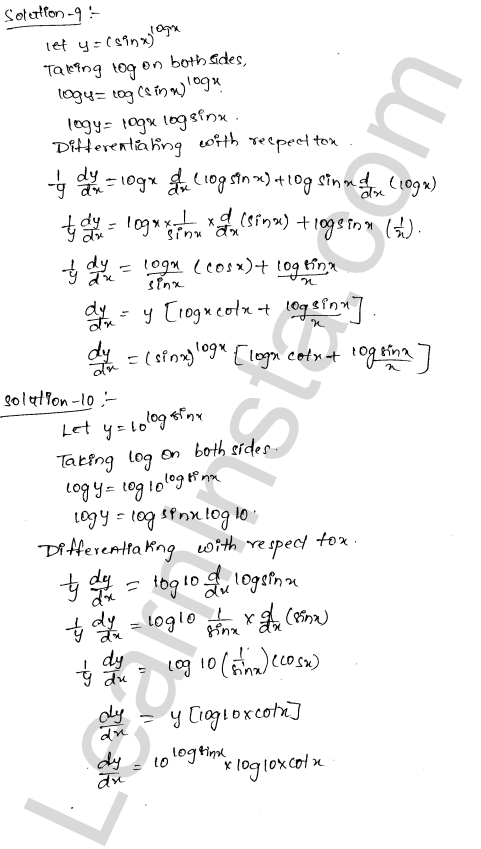 Solution-9 :-
Let y = (sinx)^logx
Taking log on both sides,
logy = log(sinx)^logx
logy = logx logsinx.
Differentiating with respect to x.
1/y dy/dx = logx d/dx (logsinx) + log sinx d/dx (logx)
1/y dy/dx = logx × 1/sinx × d/dx (sinx) + logsinx (1/x).
1/y dy/dx = logx/sinx (cosx) + logsinx/x
dy/dx = y [logx cotx + logsinx/x].
dy/dx = (sinx)^logx [logx cotx + logsinx/x]
Solution-10 :-
Let y = 10^logsinx
Taking log on both sides.
log y = log 10^logsinx
log y = log sinx log 10.
Differentiating with respect to x.
1/y dy/dx = log 10 d/dx logsinx
1/y dy/dx = log 10 1/sinx × d/dx (sinx)
1/y dy/dx = log 10 (1/sinx) (cosx)
dy/dx = y [log10 × cotx]
dy/dx = 10^logsinx × log10 × cotx
LearnInsta.com